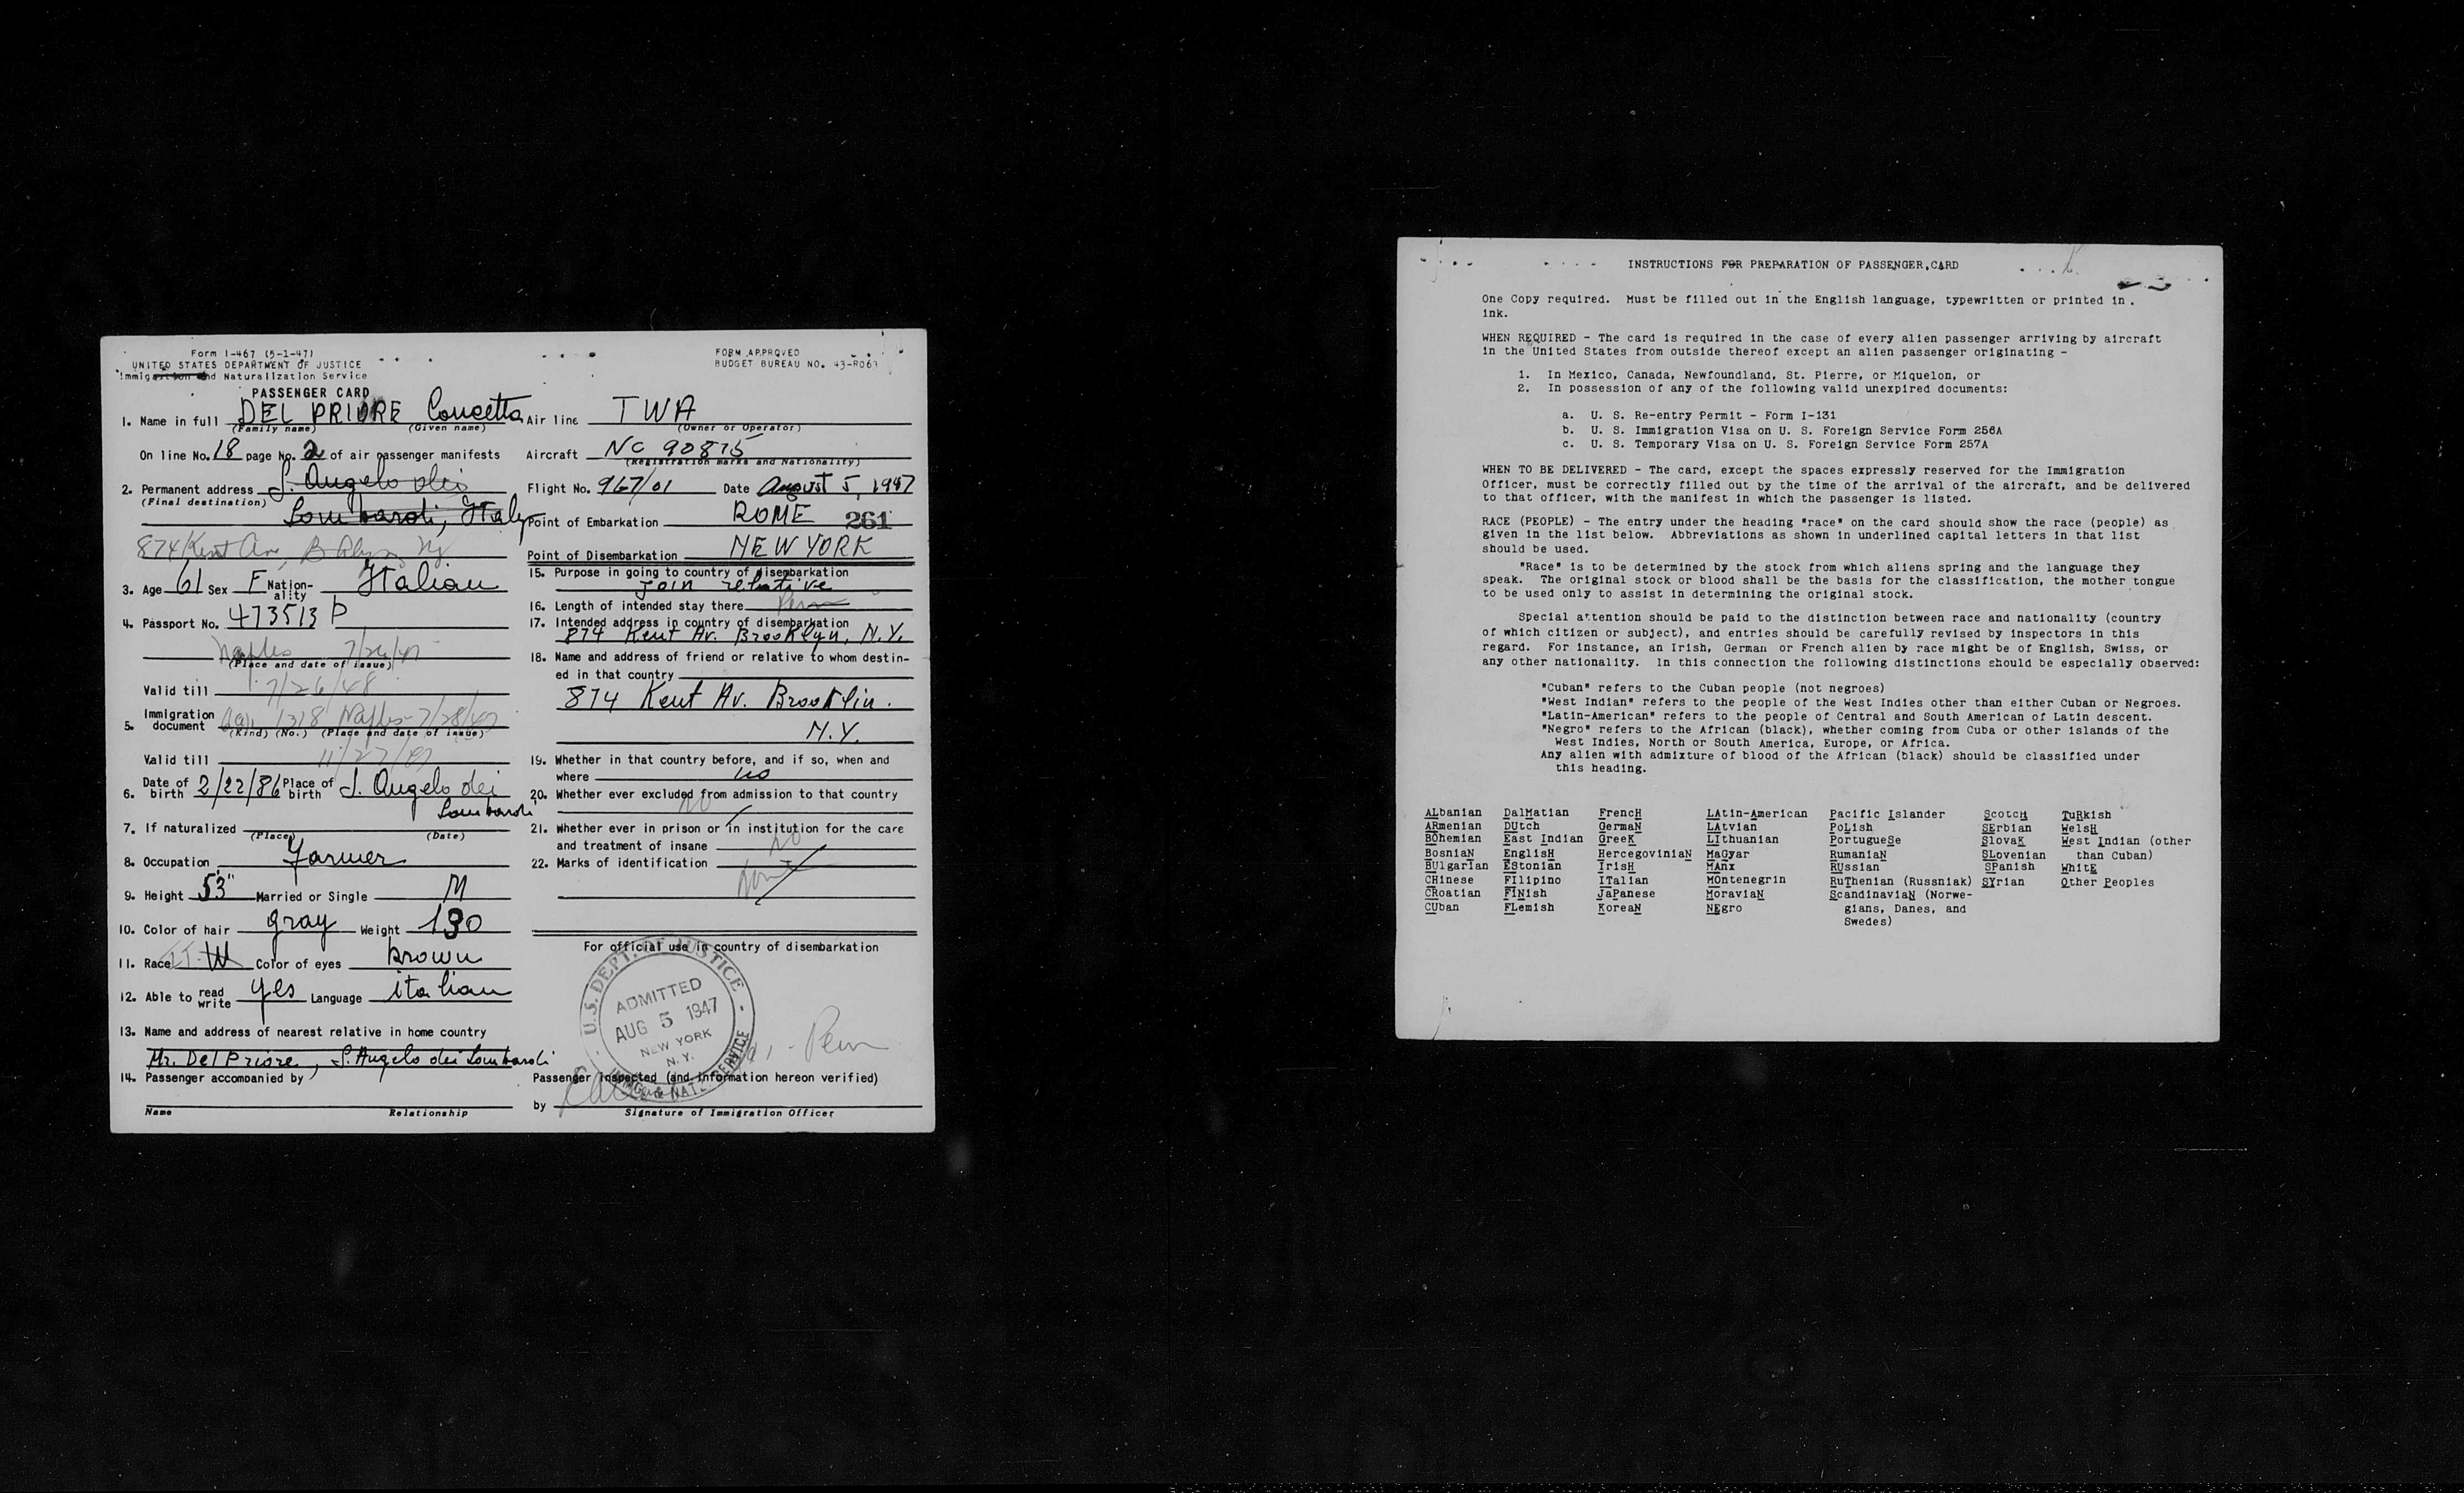 Form I-467 (5-1-47)
UNITED STATES DEPARTMENT OF JUSTICE
Immigration and Naturalization Service
FORM APPROVED
BUDGET BUREAU NO. 43-R063
PASSENGER CARD
1. Name in full DEL PRIORE Concetta
(Family name) (Given name)
On line No. 18 page No. 2 of air passenger manifests
2. Permanent address S. Angelo dei
(Final destination)
Lombardi, Italy
874 Kent Av, Bklyn NY
3. Age 61 Sex F Nation-ality Italian
4. Passport No. 473513 P
Naples 7/26/47
(Place and date of issue)
Valid till 7/26/48
5. Immigration document 1318 Naples 7/28/47
(Kind) (No.) (Place and date of issue)
Valid till 11/27/47
6. Date of birth 2/22/86 Place of birth S. Angelo dei
Lombardi
7. If naturalized
(Place) (Date)
8. Occupation Farmer
9. Height 5'3" Married or Single M
10. Color of hair gray Weight 130
11. Race IT. W Color of eyes brown
12. Able to read write yes Language italian
13. Name and address of nearest relative in home country
Mr. Del Priore, S. Angelo dei Lombardi
14. Passenger accompanied by
Name Relationship
Air line TWA
(Owner or Operator)
Aircraft NC 90875
(Registration marks and Nationality)
Flight No. 967/01 Date August 5, 1947
Point of Embarkation ROME 261
Point of Disembarkation NEW YORK
15. Purpose in going to country of disembarkation
join relative
16. Length of intended stay there Perm
17. Intended address in country of disembarkation
874 Kent Av. Brooklyn, N.Y.
18. Name and address of friend or relative to whom destin-
ed in that country
874 Kent Av. Brooklin.
N.Y.
19. Whether in that country before, and if so, when and
where no
20. Whether ever excluded from admission to that country
NO
21. Whether ever in prison or in institution for the care
and treatment of insane NO
22. Marks of identification
None
For official use in country of disembarkation
U.S. DEPT. OF JUSTICE
ADMITTED
AUG 5 1947
NEW YORK
N.Y.
IMMIG. & NATZ. SERVICE
Perm
Passenger inspected (and information hereon verified)
by
Signature of Immigration Officer
INSTRUCTIONS FOR PREPARATION OF PASSENGER CARD
One Copy required. Must be filled out in the English language, typewritten or printed in
ink.
WHEN REQUIRED - The card is required in the case of every alien passenger arriving by aircraft
in the United States from outside thereof except an alien passenger originating -
1. In Mexico, Canada, Newfoundland, St. Pierre, or Miquelon, or
2. In possession of any of the following valid unexpired documents:
a. U. S. Re-entry Permit - Form I-131
b. U. S. Immigration Visa on U. S. Foreign Service Form 256A
c. U. S. Temporary Visa on U. S. Foreign Service Form 257A
WHEN TO BE DELIVERED - The card, except the spaces expressly reserved for the Immigration
Officer, must be correctly filled out by the time of the arrival of the aircraft, and be delivered
to that officer, with the manifest in which the passenger is listed.
RACE (PEOPLE) - The entry under the heading "race" on the card should show the race (people) as
given in the list below. Abbreviations as shown in underlined capital letters in that list
should be used.
"Race" is to be determined by the stock from which aliens spring and the language they
speak. The original stock or blood shall be the basis for the classification, the mother tongue
to be used only to assist in determining the original stock.
Special attention should be paid to the distinction between race and nationality (country
of which citizen or subject), and entries should be carefully revised by inspectors in this
regard. For instance, an Irish, German or French alien by race might be of English, Swiss, or
any other nationality. In this connection the following distinctions should be especially observed:
"Cuban" refers to the Cuban people (not negroes)
"West Indian" refers to the people of the West Indies other than either Cuban or Negroes.
"Latin-American" refers to the people of Central and South American of Latin descent.
"Negro" refers to the African (black), whether coming from Cuba or other islands of the
West Indies, North or South America, Europe, or Africa.
Any alien with admixture of blood of the African (black) should be classified under
this heading.
ALbanian DalMatian FrencH LAtin-American Pacific Islander ScotcH TuRkish
ARmenian DUtch GermaN LAtvian PoLish SErbian WelsH
BOhemian East Indian GreeK LIthuanian PortugueSe SlovaK West Indian (other
BosniaN EnglisH HercegoviniaN MaGyar RumaniaN SLovenian than Cuban)
BUlgarIan EStonian IrisH MAnx RUssian SPanish WhitE
CHinese FIlipino ITalian MOntenegrin RuThenian (Russniak) SYrian Other Peoples
CRoatian FINish JaPanese MoraviaN ScandinaviaN (Norwe-
CUban FLemish KoreaN NEgro gians, Danes, and
Swedes)